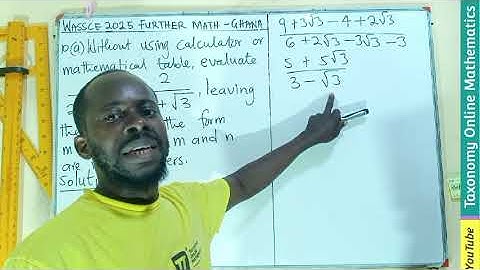 WASSCE 2025 FURTHER MATH - GHANA
10(a) Without using calculator or
mathematical table, evaluate
2
+√3, leaving
the form
m and n
are
Solut
9+3√3-4+2√3
6+2√3-3√3-3
5+5√3
3-√3
Taxonomy Online Mathematics
YouTube